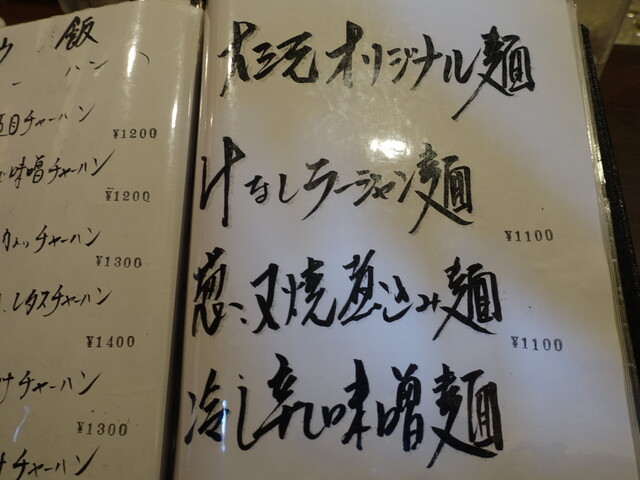 飯
チャーハン
五目チャーハン
¥1200
味噌チャーハン
¥1200
チャーハン
¥1300
レタスチャーハン
¥1400
チャーハン
¥1300
チャーハン
大三元オリジナル麺
汁なしラージャン麺
¥1100
葱、叉焼煮込み麺
¥1100
冷し辛味噌麺